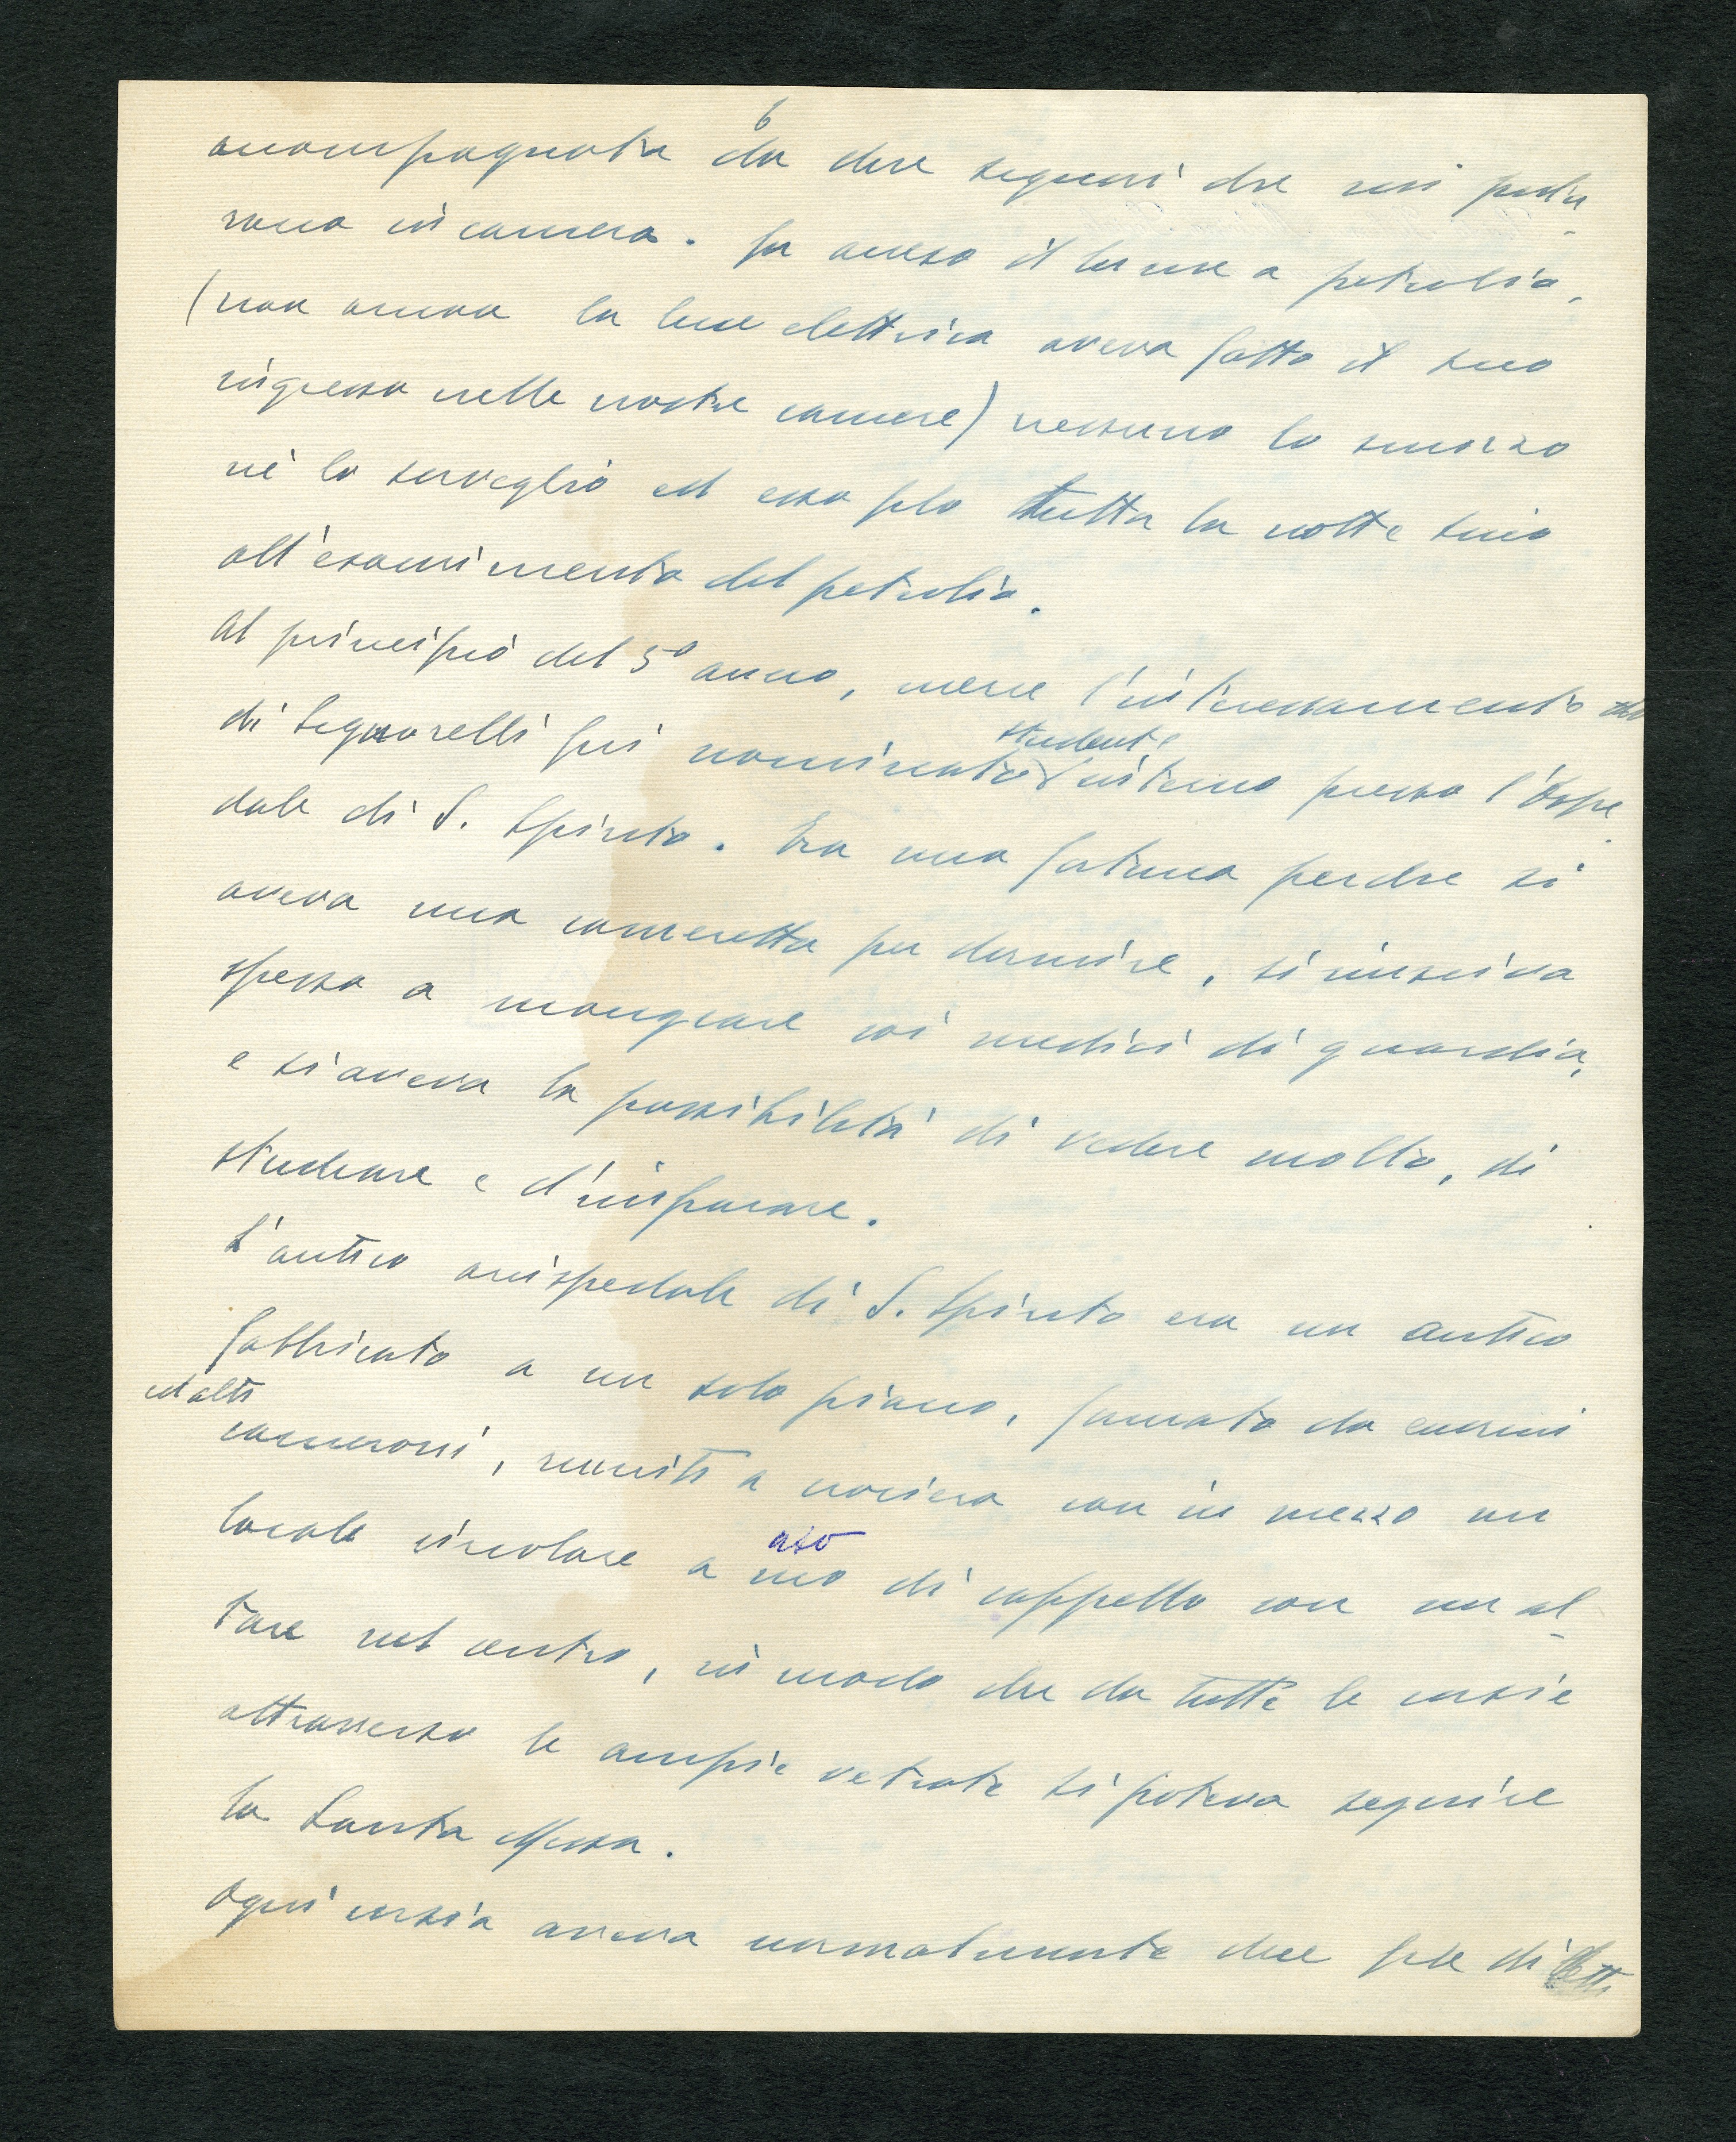 6
accompagnata da due signori che mi porta-
rono in camera. Fu acceso il lume a petrolio,
(non ancora la luce elettrica aveva fatto il suo
ingresso nelle nostre camere) nessuno lo smorzò
nè lo sorvegliò ed esso filò tutta la notte sino
all'esaurimento del petrolio.
Al principio del 5º anno, mercè l'interessamento
di Signorelli fui nominato studente interno presso l'Ospe-
dale di S. Spirito. Era una fortuna perchè si
aveva una cameretta per dormire, si riusciva
spesso a mangiare coi medici di guardia,
e si aveva la possibilità di vedere molto, di
studiare e d'imparare.
L'antico arcispedale di S. Spirito era un antico
fabbricato a un solo piano, formato da enormi
ed alti
cameroni, riuniti a crociera con in mezzo un
locale circolare a uso di cappella con un al-
tare nel centro, in modo che da tutte le corsie
attraverso le ampie vetrate si poteva seguire
la Santa Messa.
Ogni corsia aveva normalmente due file di letti